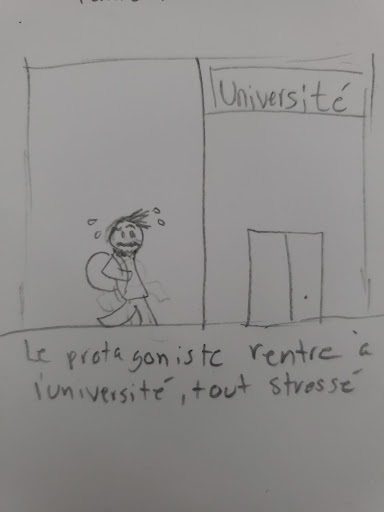 Université
Le protagoniste rentre à
l'université, tout stressé